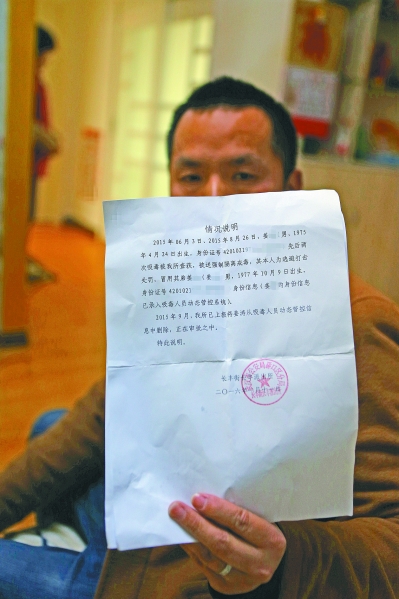 情况说明
2015年06月3日、2015年8月26日，姜 男，1975
年4月24日出生，身份证号420103 先后两
次吸毒被我所查获，被送强制隔离戒毒，其本人为逃避打击
处罚，冒用其弟姜 男，1977年10月9日出生，
身份证号420102 身份信息（姜 的身份信息
已录入吸毒人员动态管控系统）。
2015年9月，我所已上报将姜涛从吸毒人员动态管控信
息中删除，正在审批之中。
特此说明。
长丰街
二〇一六年